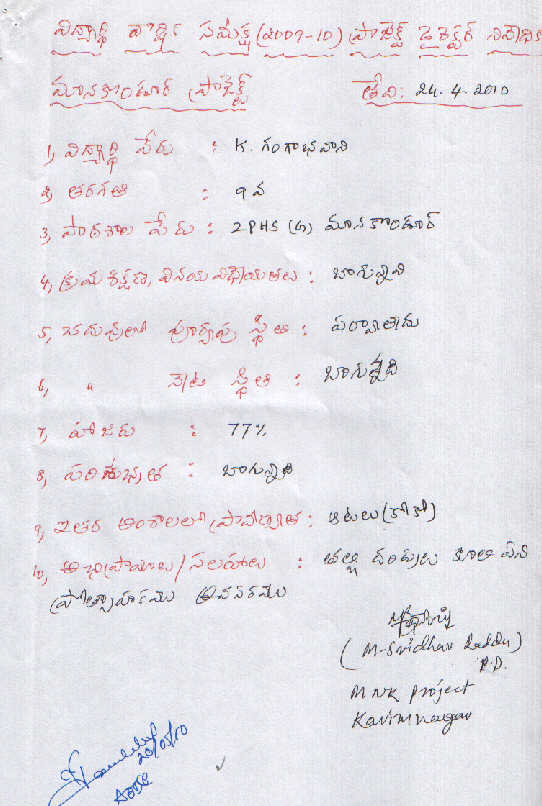 విద్యార్థి వార్షిక సమీక్ష (2009-10) ప్రాజెక్ట్ డైరెక్టర్
మానకొండూర్ ప్రాజెక్ట్ తేది: 24.4.2010
1, విద్యార్థి పేరు : K. గంగాభవాని
2, తరగతి : 9 వ
3, పాఠశాల పేరు : ZPHS (G) మానకొండూర్
4, క్రమశిక్షణ, వినయ విధేయతలు : బాగున్నవి
5, చదువులో పూర్వపు స్థితి : పర్వాలేదు
6, " నేటి స్థితి : బాగున్నది
7, హాజరు : 77%
8, పరిశుభ్రత : బాగున్నది
9, ఇతర అంశాలలో ప్రావీణ్యత : ఆటలు (కోకో)
10, అభిప్రాయాలు / సలహాలు : తల్లి దండ్రులు కూలీ పని
ప్రోత్సాహకము అవసరము
(M. Sridhar Reddy)
P.D.
MNK Project
Karimnagar